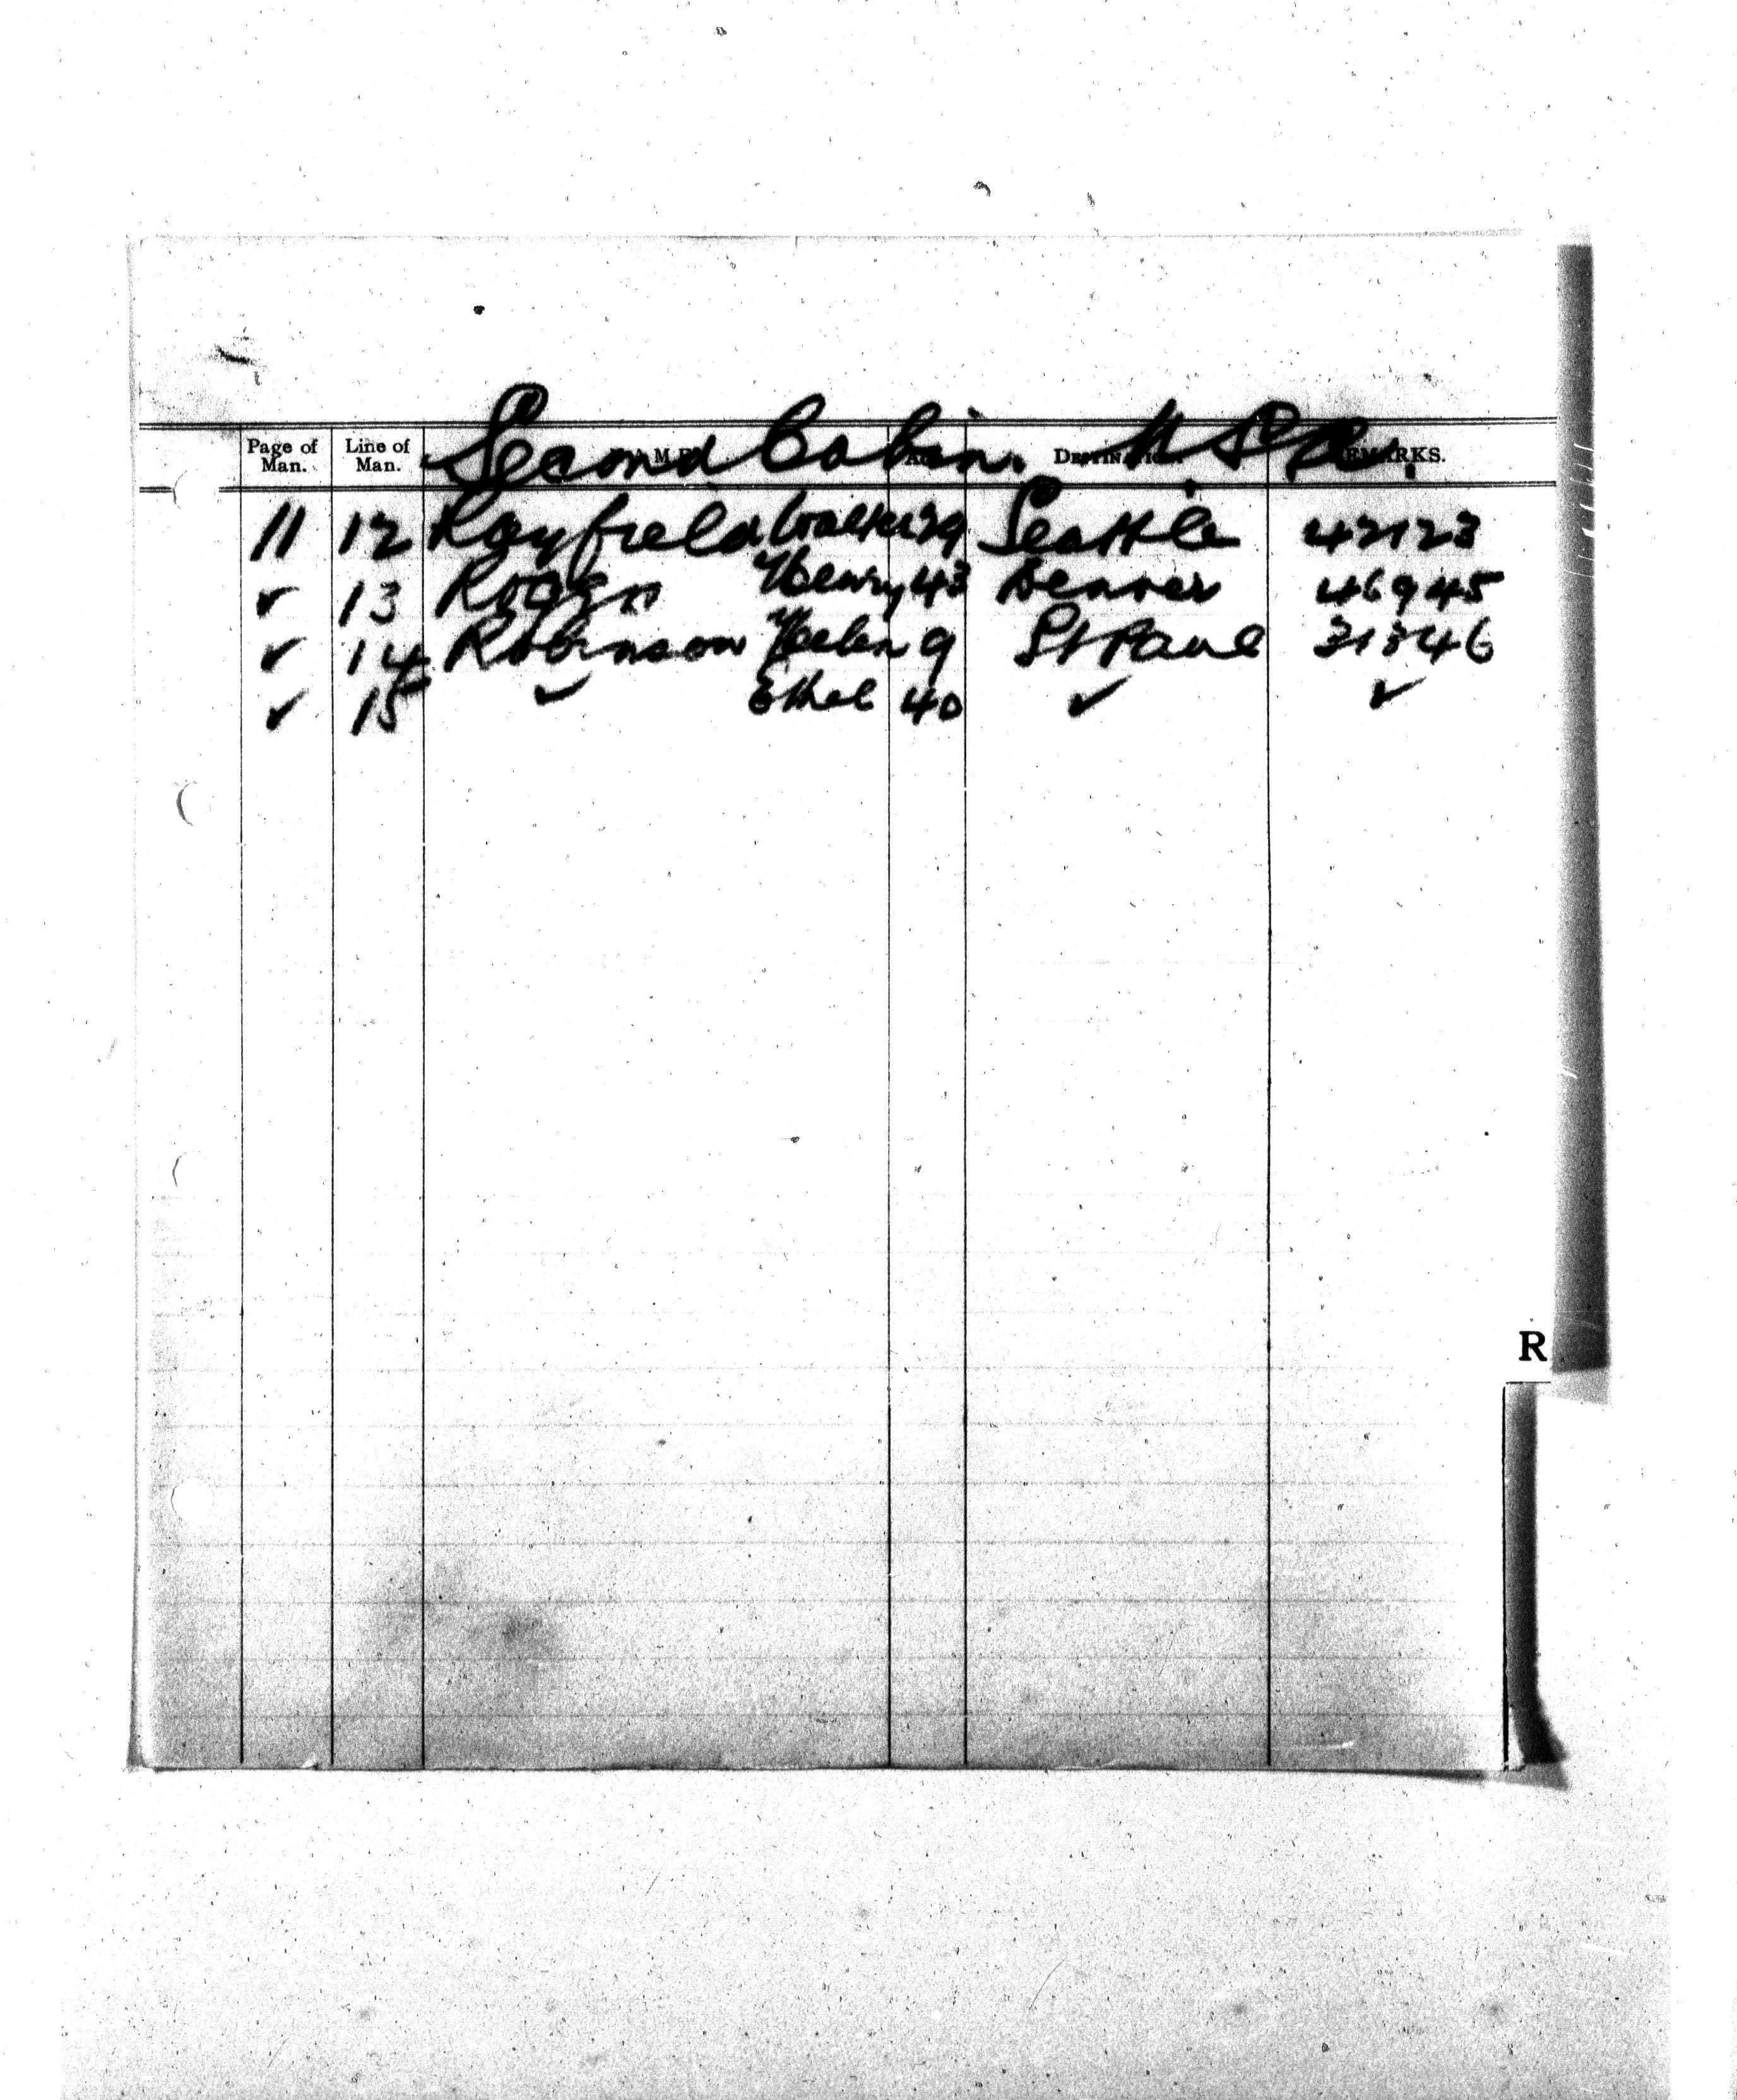 Second Cabin. U.S.A.
Page of Man. Line of Man. NAME AGE DESTINATION. REMARKS.
11 12 Rayfield Walter 29 Seattle 42123
✓ 13 Henry 43 Denver 46945
✓ 14 Robinson Helen 9 St Paul 31346
✓ 15 ✓ Ethel 40 ✓ ✓
R